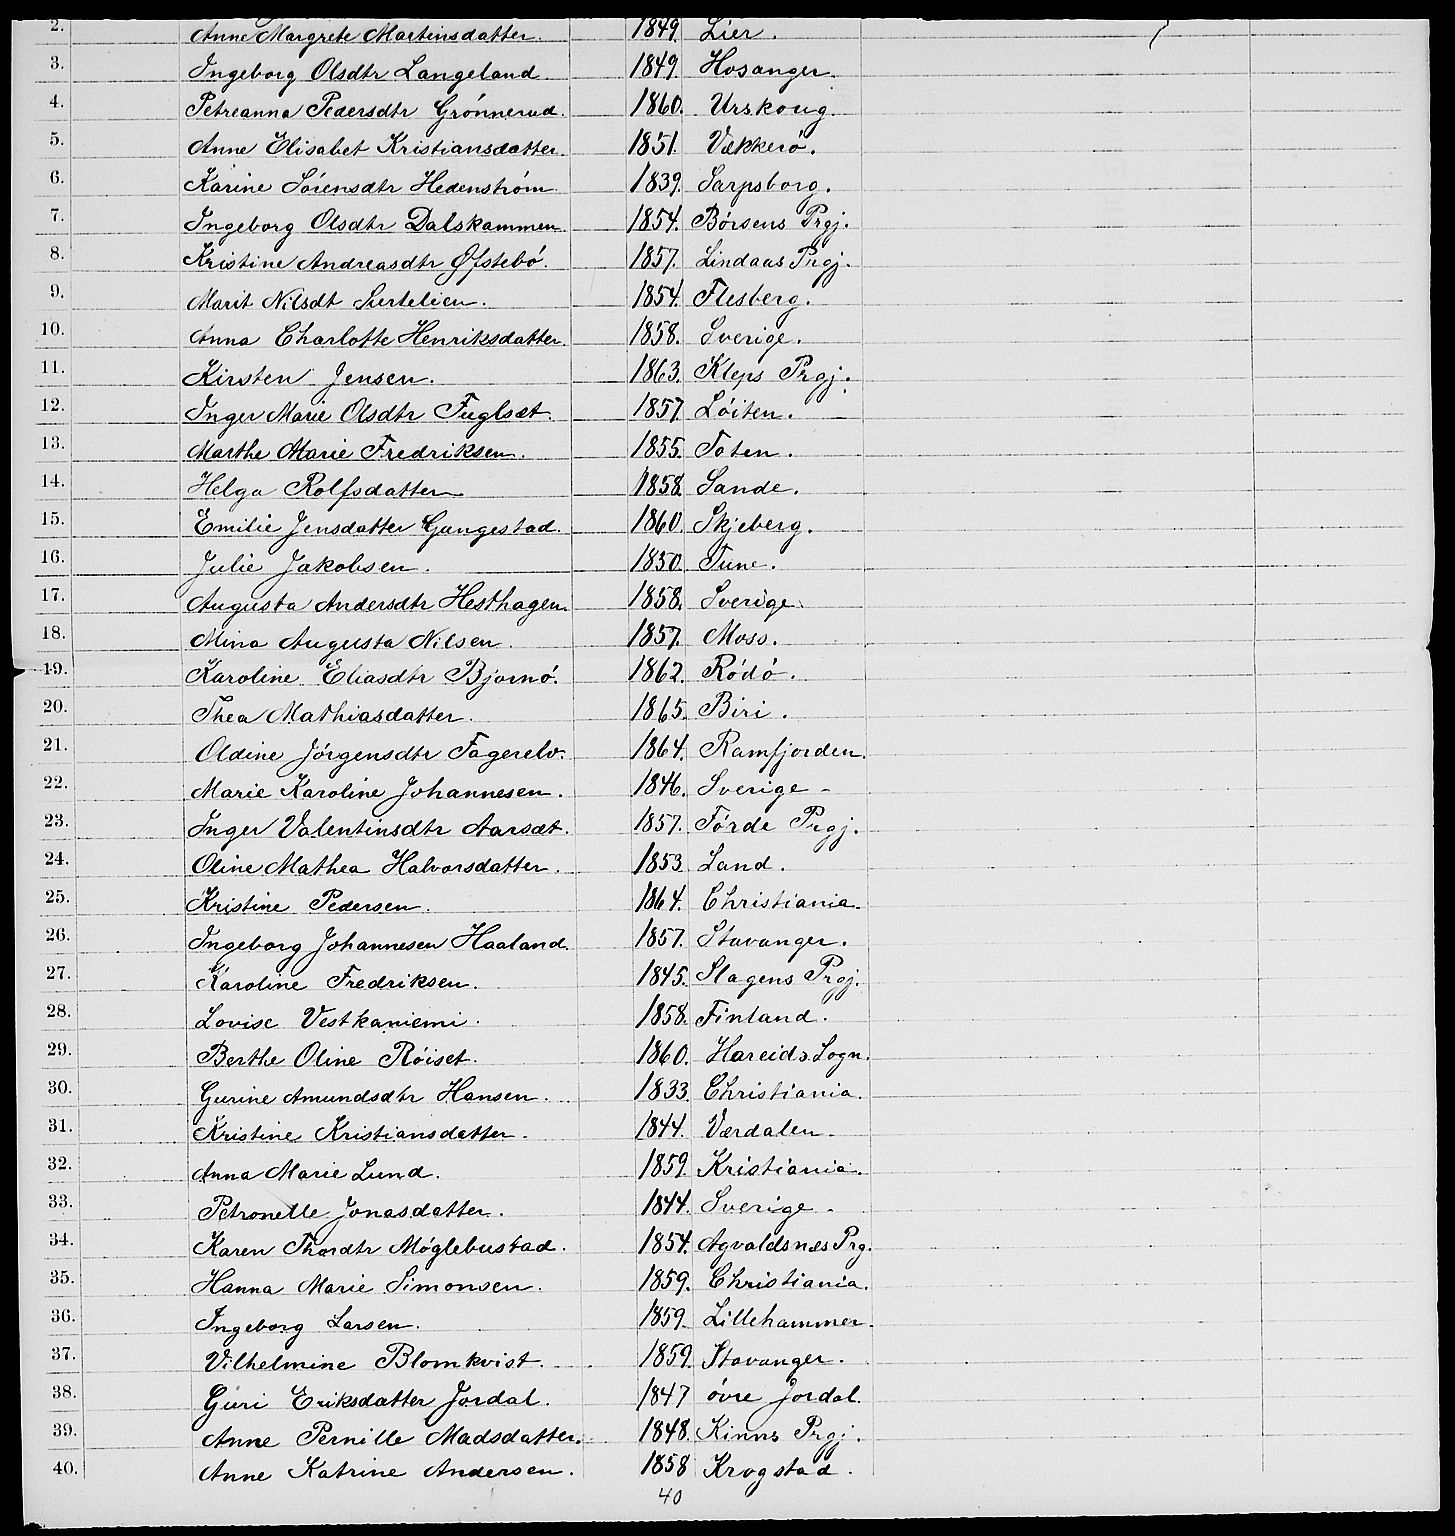 2. Anne Margrete Martinsdatter. 1849. Lier.
3. Ingeborg Olsdtr Langeland 1849. Hosanger.
4. Petreanna Pedersdtr Grónnerud. 1860. Urskoug.
5. Anne Elisabet Kristiansdatter. 1851. Vækkeró.
6. Karine Sórensdtr Hedenstróm 1839. Sarpsborg.
7. Ingeborg Olsdtr Dalskammen 1854. Børsens Prgj.
8. Kristine Andreasdtr Øfstebó. 1857. Lindaas Prgj.
9. Marit Nilsdt Surtelien. 1854. Flesberg.
10. Anna Charlotte Henriksdatter. 1858. Sverige.
11. Kirsten Jensen. 1863. Kleps Prgj.
12. Inger Marie Olsdtr Fuglset. 1857 Lóiten.
13. Marthe Marie Fredriksen. 1855. Toten.
14. Helga Rolfsdatter 1858. Sande.
15. Emilie Jensdatter Gangestad. 1860. Skjeberg.
16. Julie Jakobsen. 1850. Tune.
17. Augusta Andersdtr Hesthagen. 1858. Sverige.
18. Mina Augusta Nilsen. 1857. Moss.
19. Karoline Eliasdtr Bjornó. 1862. Ródó.
20. Thea Mathiasdatter. 1865. Biri.
21. Oldine Jórgensdtr Fagerelv. 1864. Ramfjorden.
22. Marie Karoline Johannesen. 1846. Sverige -
23. Inger Valentinsdtr Aarsæt. 1857. Fórde Prgj.
24. Oline Mathea Halvorsdatter. 1853. Land.
25. Kristine Pedersen. 1864. Christiania.
26. Ingeborg Johannesen Haaland. 1857. Stavanger.
27. Karoline Fredriksen. 1845. Slagens Prgj.
28. Lovise Vestkaniemi. 1858. Finland.
29. Berthe Oline Róiset. 1860. Hareids Sogn.
30. Gurine Amundsdtr Hansen. 1833. Christiania.
31. Kristine Kristiansdatter. 1844. Værdalen.
32. Anna Marie Lund. 1859. Kristiania.
33. Petronelle Jonasdatter. 1844. Sverige -
34. Karen Thordtr Móglebustad. 1854. Agvaldsnæs Prg.
35. Hanna Marie Simonsen. 1859. Christiania.
36. Ingeborg Larsen. 1859. Lillehammer.
37. Vilhelmine Blomkvist. 1859. Stavanger.
38. Guri Eriksdatter Jordal. 1847 óvre Jordal.
39. Anne Pernille Madsdatter. 1848. Kinns Prgj.
40. Anne Katrine Andersen. 1858 Krogstad.
40